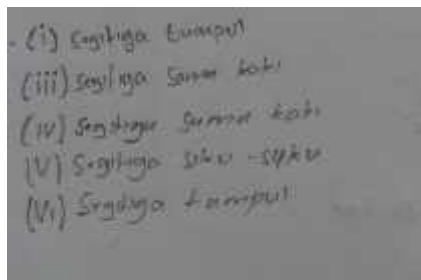 (i) Segitiga tumpul
(iii) segitiga sama kaki
(iv) Segitiga sama kaki
(V) Segitiga siku-siku
(Vi) Segitiga tumpul